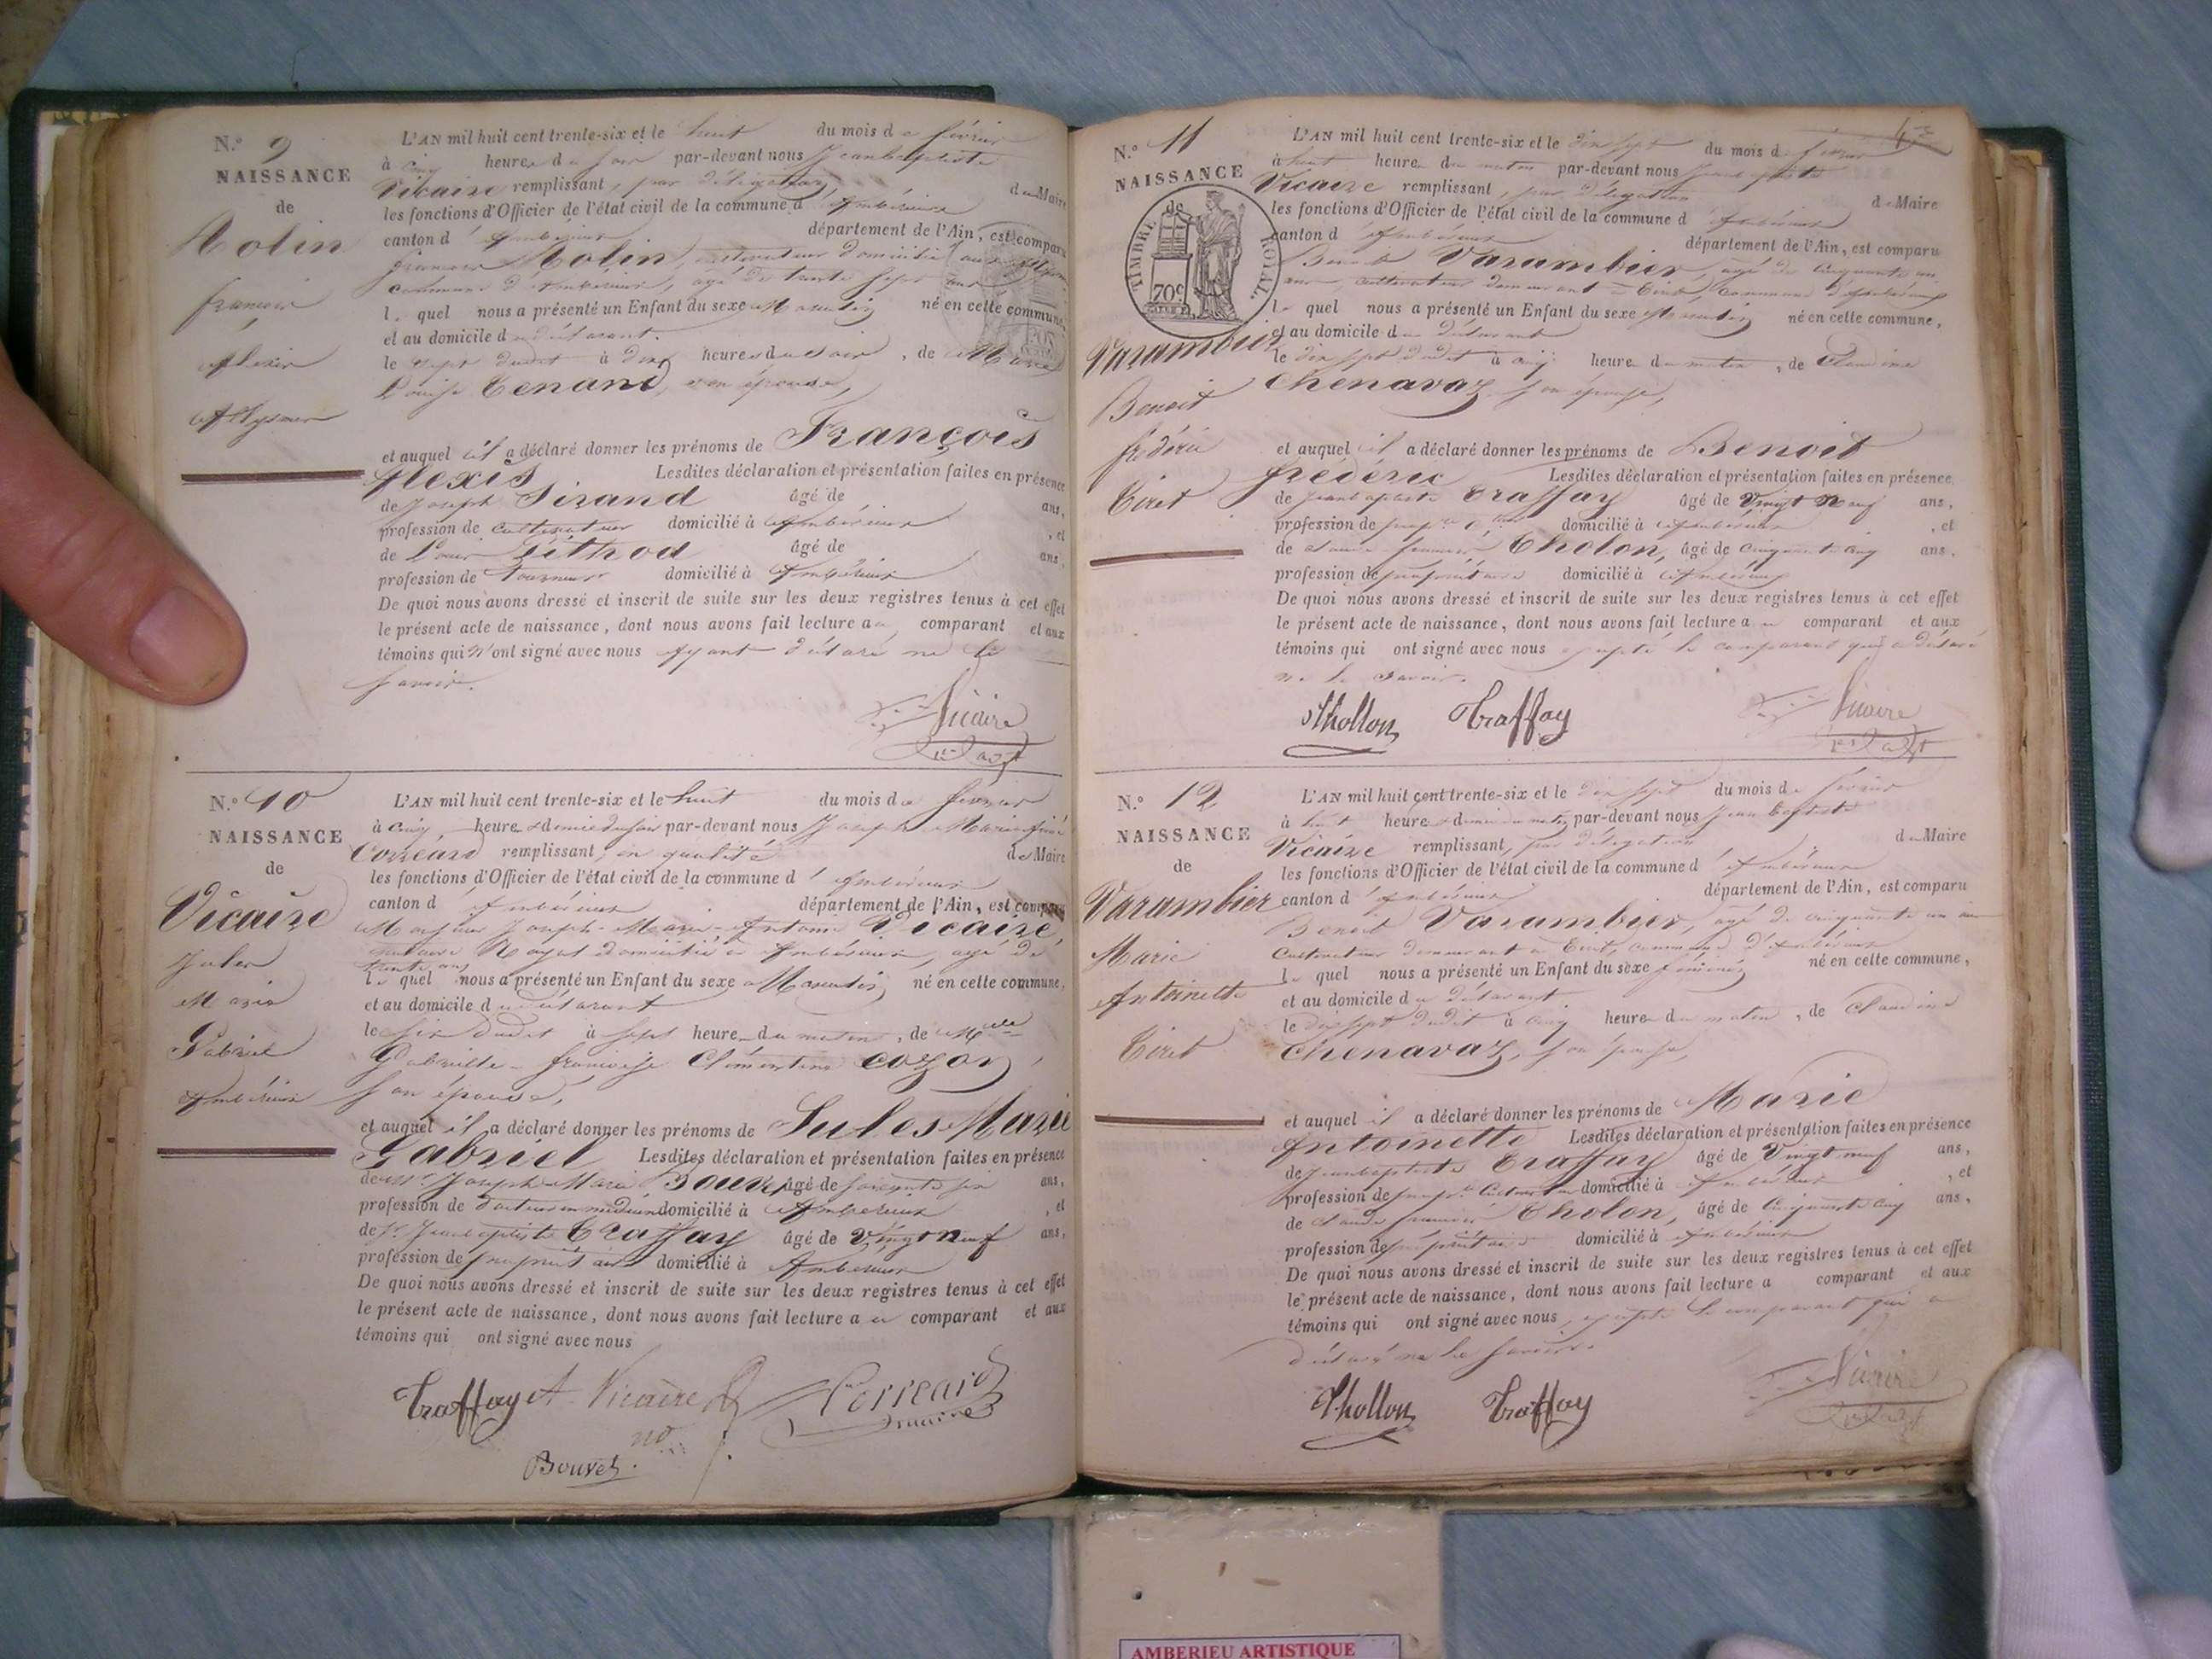 N.º 9
NAISSANCE
de
Molin
françois
Alexis
Allymes
L'AN mil huit cent trente-six et le huit du mois de février
à cinq heures du soir par-devant nous Jean baptiste
Vicaire remplissant, par délégation, du Maire
les fonctions d'Officier de l'état civil de la commune d'Ambérieux
canton d'Ambérieux département de l'Ain, est comparu
françois Molin, cultivateur domicilié aux Allymes
commune d'Ambérieux, agé de trente sept ans
lequel nous a présenté un Enfant du sexe Masculin né en cette commune,
et au domicile du déclarant.
le sept dudit à dix heures du soir, de Marie
Louise Tenand, son épouse,
et auquel il a déclaré donner les prénoms de François
Alexis Lesdites déclaration et présentation faites en présence
de Joseph Sirand âgé de ans,
profession de cultivateur domicilié à Ambérieux, et
de Louis âgé de ans,
profession de Tourneur domicilié à Ambérieux
De quoi nous avons dressé et inscrit de suite sur les deux registres tenus à cet effet
le présent acte de naissance, dont nous avons fait lecture au comparant et aux
témoins qui n'ont signé avec nous ayant déclaré ne le
savoir.
Vicaire
N.º 10
NAISSANCE
de
Vicaire
Jules
Marie
Gabriel
Ambérieux
L'AN mil huit cent trente-six et le huit du mois de février
à cinq heures et demie du soir par-devant nous Joseph Marie
Corréard remplissant, en qualité de Maire
les fonctions d'Officier de l'état civil de la commune d'Ambérieux
canton d'Ambérieux département de l'Ain, est comparu
Monsieur Joseph-Marie-Antoine Vicaire,
notaire Royal domicilié à Ambérieux, agé de
trente ans
lequel nous a présenté un Enfant du sexe Masculin né en cette commune,
et au domicile du déclarant
le six dudit à sept heures du matin, de
Gabrielle-françoise Clémentine Cozon,
son épouse,
et auquel il a déclaré donner les prénoms de Jules Marie
Gabriel Lesdites déclaration et présentation faites en présence
de Mr Joseph Marie Bouvet âgé de soixante six ans,
profession de docteur en médecine domicilié à Ambérieux, et
de Sr Jean baptiste Traffay âgé de vingt neuf ans,
profession de propriétaire domicilié à Ambérieux
De quoi nous avons dressé et inscrit de suite sur les deux registres tenus à cet effet
le présent acte de naissance, dont nous avons fait lecture au comparant et aux
témoins qui ont signé avec nous
Traffay A. Vicaire Corréard
no. maire
Bouvet.
N.º 11
NAISSANCE
de
TIMBRE ROYAL.
70c
Varambier
Benoit
frédéric
Tiret
L'AN mil huit cent trente-six et le dix sept du mois de février
à huit heures du matin par-devant nous Jean baptiste
Vicaire remplissant, par délégation du Maire
les fonctions d'Officier de l'état civil de la commune d'Ambérieux
canton d'Ambérieux département de l'Ain, est comparu
Benoit Varambier, agé de cinquante un
ans, cultivateur demeurant à Tiret, commune d'Ambérieux
lequel nous a présenté un Enfant du sexe Masculin né en cette commune,
et au domicile du déclarant
le dix sept dudit à cinq heures du matin, de Claudine
Chenavaz, son épouse,
et auquel il a déclaré donner les prénoms de Benoit
frédéric Lesdites déclaration et présentation faites en présence
de Jean baptiste Traffay âgé de vingt neuf ans,
profession de domicilié à Ambérieux, et
de Claude françois Tholon, âgé de cinquante cinq ans,
profession de propriétaire domicilié à Ambérieux
De quoi nous avons dressé et inscrit de suite sur les deux registres tenus à cet effet
le présent acte de naissance, dont nous avons fait lecture au comparant et aux
témoins qui ont signé avec nous excepté le comparant qui a déclaré
ne le savoir.
Thollon Traffay Vicaire
N.º 12
NAISSANCE
de
Varambier
Marie
Antoinette
Tiret
L'AN mil huit cent trente-six et le dix sept du mois de février
à huit heures et demie du matin par-devant nous Jean baptiste
Vicaire remplissant, par délégation du Maire
les fonctions d'Officier de l'état civil de la commune d'Ambérieux
canton d'Ambérieux département de l'Ain, est comparu
Benoit Varambier, agé de cinquante un ans
cultivateur demeurant à Tiret, commune d'Ambérieux
lequel nous a présenté un Enfant du sexe féminin né en cette commune,
et au domicile du déclarant.
le dix sept dudit à cinq heures du matin, de Claudine
Chenavaz, son épouse,
et auquel il a déclaré donner les prénoms de Marie
Antoinette Lesdites déclaration et présentation faites en présence
de Jean baptiste Traffay âgé de vingt neuf ans,
profession de domicilié à Ambérieux, et
de Claude françois Tholon, âgé de cinquante cinq ans,
profession de propriétaire domicilié à Ambérieux
De quoi nous avons dressé et inscrit de suite sur les deux registres tenus à cet effet
le présent acte de naissance, dont nous avons fait lecture a comparant et aux
témoins qui ont signé avec nous, excepté le comparant qui a
déclaré ne le savoir.
Thollon Traffay Vicaire
AMBERIEU ARTISTIQUE